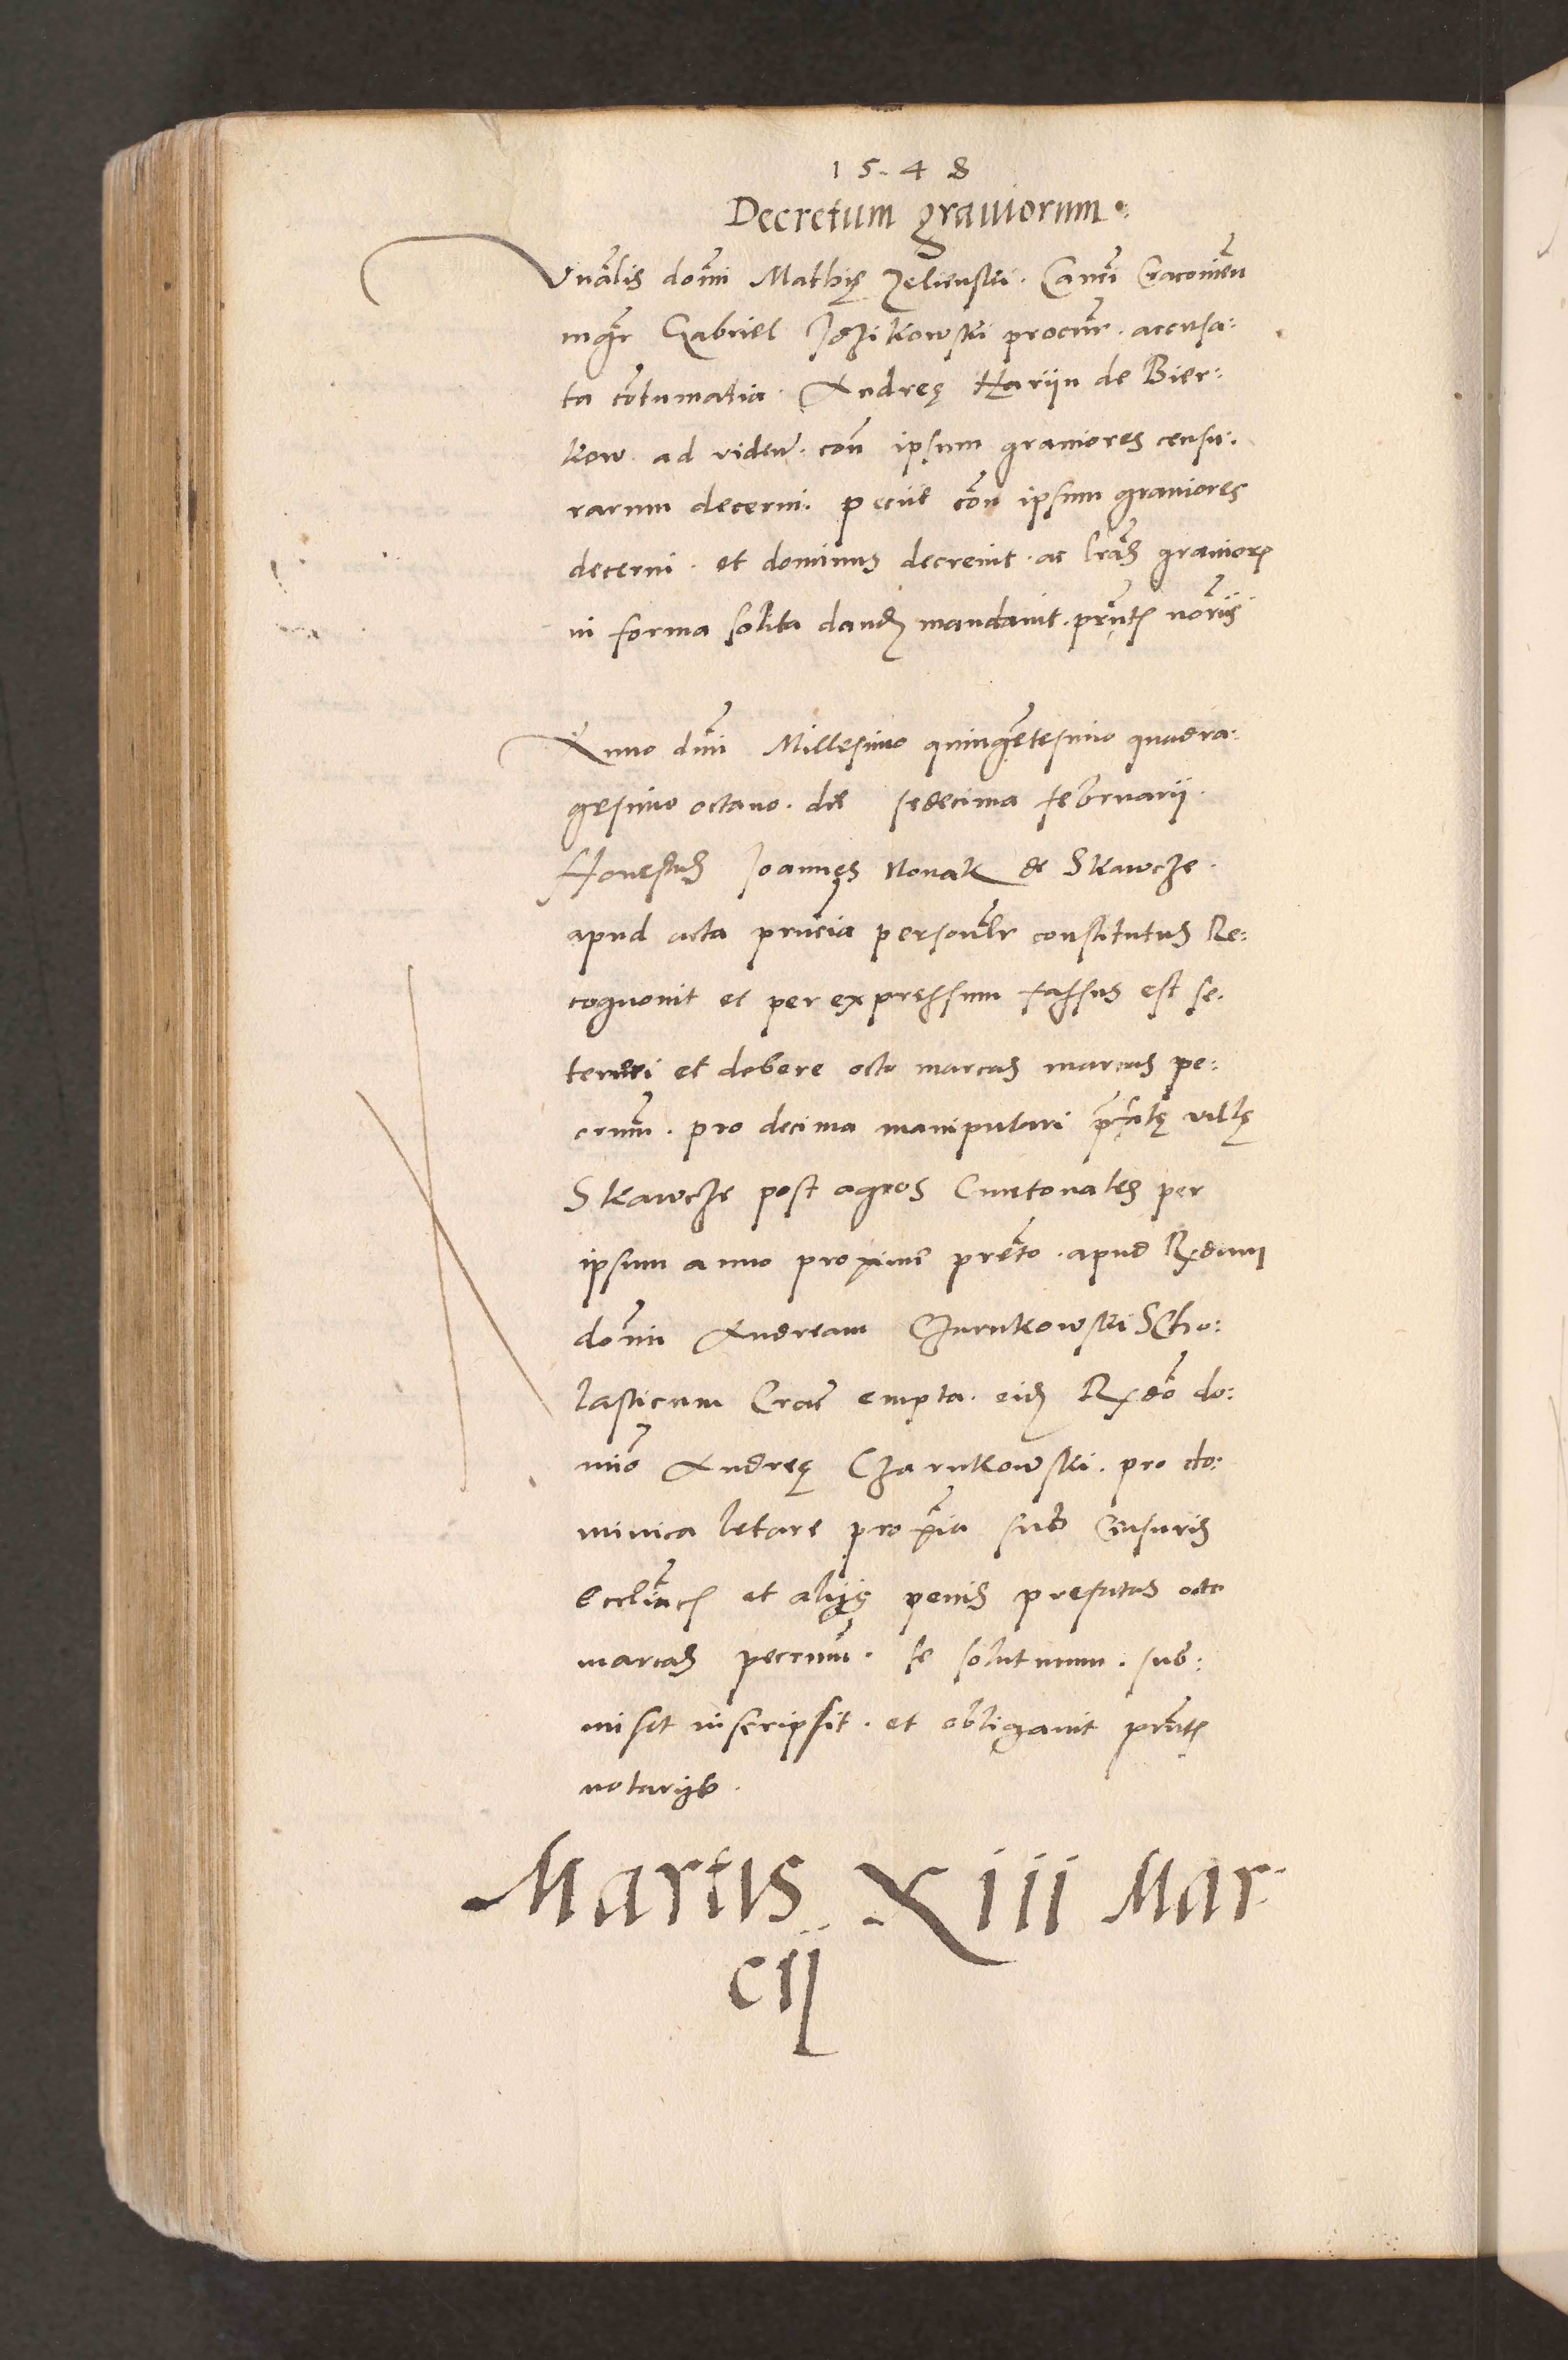 1548
Decretum graviorum
Vnãlis domi Mathię Zelienski. Canci Cracovien
mgr Gabriel procur. accusa:
ta cõtumatia. Andreę Hariin de Bier:
kow. ad viden. con ipsum graviores censu:
rarum decerni. peciit cõn ipsum graviores
decerni. et dominus decrevit. ac lras graviorẽ
in forma solita dand mandavit. prñtẽ noriis
Anno dñi Millesimo quingẽtesimo quadra:
gesimo octavo. die sedecima februarii.
Honestus Joannes Novak de Skawcze.
apud acta prncia personlr constitutus Re:
cognovit et per expressum fassus est se.
teneri et debere octo marcas marcas pe:
cunm. pro decima manipulari prefatę villę
Skawcze post agros Cmetonales per
ipsum anno proxime prẽto. apud Rdum
domin Andream Czarnkowski Scho:
lasticum Crac empta. eid Rdõ do:
mino Andreę Czarnkowski. pro do:
minica letare proxia sub censuris
Eccliatcis et aliis penis prefatas octo
marcas pecunm. se soluturum. sub:
misit inscripsit. et obligavit prntẽ
notariis.
Martis Xiii Mar
cii